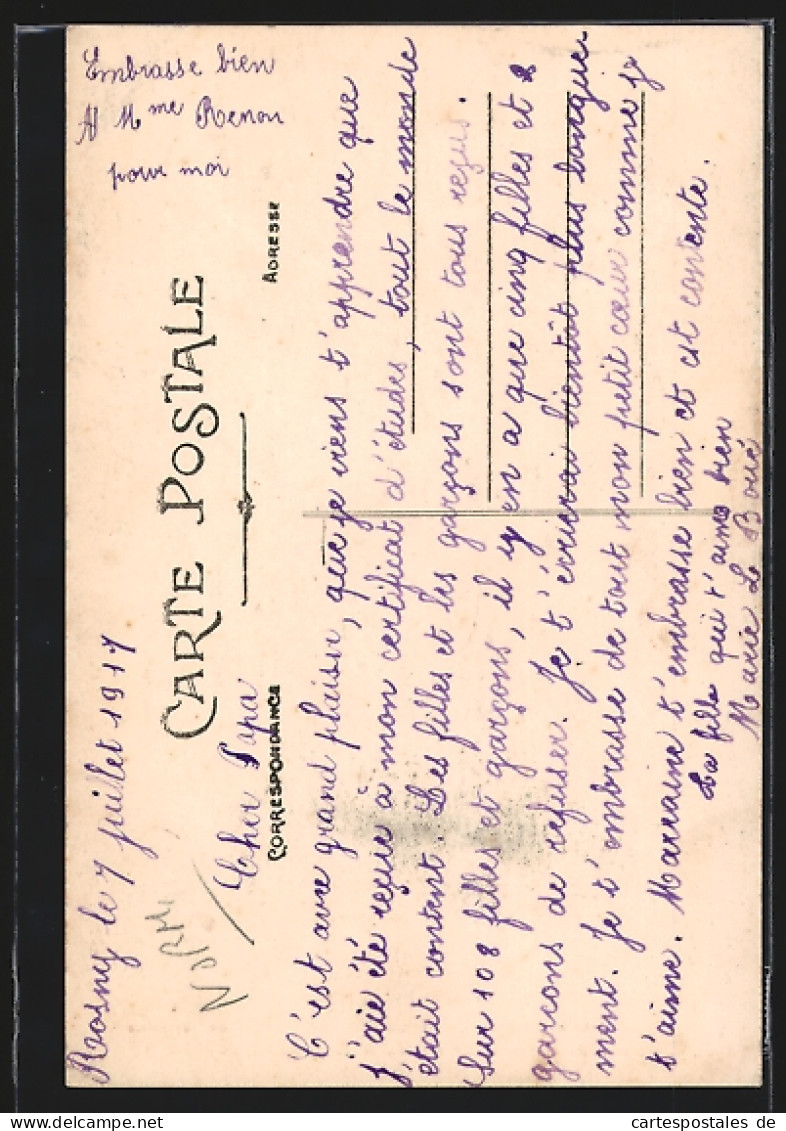 Rosny le 7 juillet 1917
CARTE POSTALE
CORRESPONDANCE
ADRESSE
Cher Papa
C'est avec grand plaisir, que je viens t'apprendre que
j'aie été reçue à mon certificat d'études, tout le monde
était content. Les filles et les garçons sont tous reçus.
Sur 108 filles et garçons, il y en a que cinq filles et 2
garçons de refuser. Je t'écrierai bientôt plus longue-
ment. Je t'embrasse de tout mon petit cœur comme je
t'aime. Marraine t'embrasse bien et est contente.
La fille qui t'aime bien
Marie Le Boué
Embrasse bien
Mme Renou
pour moi
© oldthing
cartespostales de